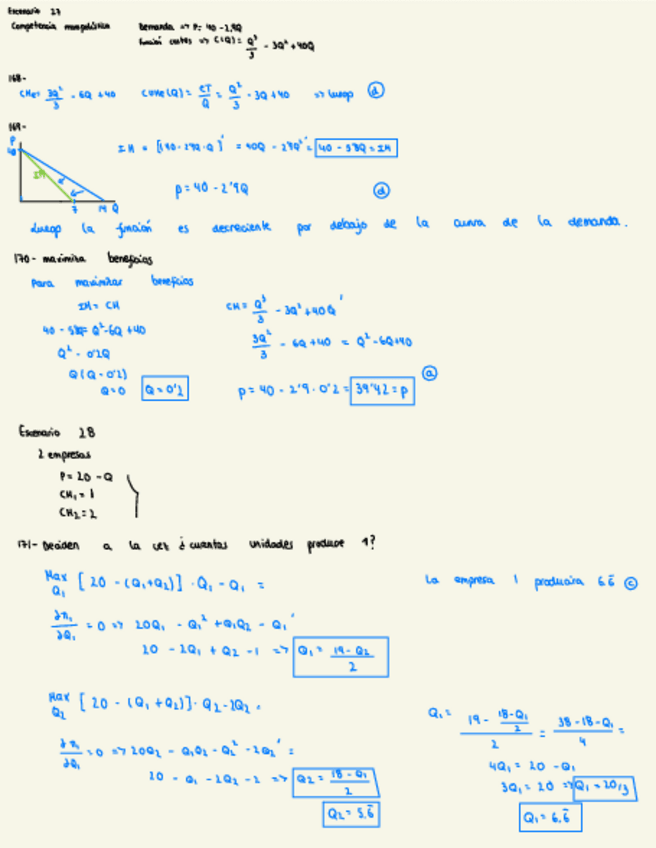 Escenario 27
Competencia monopolística
Demanda => P= 40 - 2,9Q
función costes => C(Q) = Q³/3 - 3Q² + 40Q
168-
CMe= 3Q²/3 - 6Q + 40 CMe(Q) = CT/Q = Q²/3 - 3Q + 40 => luego (d)
169-
P
40
IM
7 14 Q
IM = [(40-2'9Q·Q)' = 40Q - 2'9Q²' = 40 - 5'8Q = IM
p = 40 - 2'9Q (d)
Luego la función es decreciente por debajo de la curva de la demanda.
170- maximiza beneficios
Para maximizar beneficios
IM = CM
40 - 5'8Q = Q² - 6Q + 40
Q² - 0'2Q
Q(Q - 0'2)
Q=0 Q=0'2
CM = Q³/3 - 3Q² + 40Q'
3Q²/3 - 6Q + 40 = Q² - 6Q + 40
p = 40 - 2'9 · 0'2 = 39'42 = p (a)
Escenario 28
2 empresas
P = 20 - Q
CM₁ = 1
CM₂ = 2
171- Deciden a la vez ¿cuantas unidades produce 1?
Max Q₁ [20 - (Q₁+Q₂)] · Q₁ - Q₁ =
∂π₁/∂Q₁ = 0 => 20Q₁ - Q₁² + Q₁Q₂ - Q₁'
20 - 2Q₁ + Q₂ - 1 => Q₁ = 19 - Q₂/2
La empresa 1 producira 6.6 (c)
Max Q₂ [20 - (Q₁+Q₂)] · Q₂ - 2Q₂ =
∂π₁/∂Q₁ = 0 => 20Q₂ - Q₁Q₂ - Q₂² - 2Q₂' =
20 - Q₁ - 2Q₂ - 2 => Q₂ = 18 - Q₁/2
Q₂ = 5.6
Q₁ = 19 - 18-Q₁/2 / 2 = 38-18-Q₁/4 =
4Q₁ = 20 - Q₁
3Q₁ = 20 => Q₁ = 20/3
Q₁ = 6.6